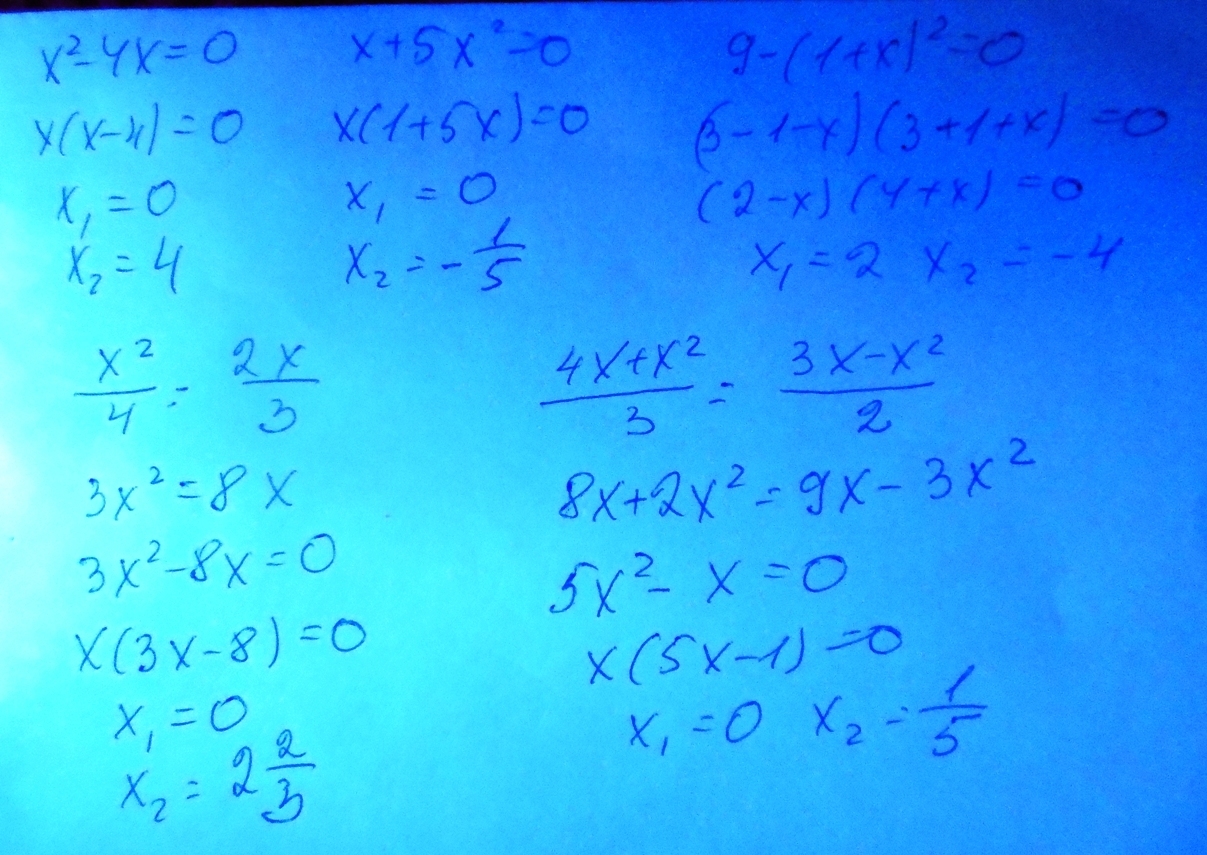 x²-4x=0
x(x-4)=0
x₁=0
x₂=4
x+5x²=0
x(1+5x)=0
x₁=0
x₂=-1/5
9-(1+x)²=0
(3-1-x)(3+1+x)=0
(2-x)(4+x)=0
x₁=2 x₂=-4
x²/4=2x/3
3x²=8x
3x²-8x=0
x(3x-8)=0
x₁=0
x₂=2 2/3
(4x+x²)/3=(3x-x²)/2
8x+2x²=9x-3x²
5x²-x=0
x(5x-1)=0
x₁=0 x₂=1/5